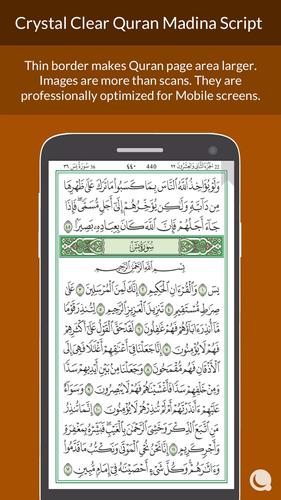 Crystal Clear Quran Madina Script
Thin border makes Quran page area larger.
Images are more than scans. They are
professionally optimized for Mobile screens.
36 سورة يس ٣٦
٤٤٠ 440
22 الجزء الثاني والعشرون ٢٢
وَلَوْ يُؤَاخِذُ اللَّهُ النَّاسَ بِمَا كَسَبُوا مَا تَرَكَ عَلَىٰ ظَهْرِهَا
مِن دَابَّةٍ وَلَٰكِن يُؤَخِّرُهُمْ إِلَىٰ أَجَلٍ مُّسَمًّى فَإِذَا
جَاءَ أَجَلُهُمْ فَإِنَّ اللَّهَ كَانَ بِعِبَادِهِ بَصِيرًا ٤٥
سُورَةُ يسٓ
بِسْمِ اللَّهِ الرَّحْمَٰنِ الرَّحِيمِ
يسٓ ١ وَالْقُرْآنِ الْحَكِيمِ ٢ إِنَّكَ لَمِنَ الْمُرْسَلِينَ ٣ عَلَىٰ
صِرَاطٍ مُّسْتَقِيمٍ ٤ تَنزِيلَ الْعَزِيزِ الرَّحِيمِ ٥ لِتُنذِرَ قَوْمًا
مَّا أُنذِرَ آبَاؤُهُمْ فَهُمْ غَافِلُونَ ٦ لَقَدْ حَقَّ الْقَوْلُ عَلَىٰ أَكْثَرِهِمْ
فَهُمْ لَا يُؤْمِنُونَ ٧ إِنَّا جَعَلْنَا فِي أَعْنَاقِهِمْ أَغْلَالًا فَهِيَ إِلَى
الْأَذْقَانِ فَهُم مُّقْمَحُونَ ٨ وَجَعَلْنَا مِن بَيْنِ أَيْدِيهِمْ سَدًّا
وَمِنْ خَلْفِهِمْ سَدًّا فَأَغْشَيْنَاهُمْ فَهُمْ لَا يُبْصِرُونَ ٩ وَسَوَاءٌ
عَلَيْهِمْ أَأَنذَرْتَهُمْ أَمْ لَمْ تُنذِرْهُمْ لَا يُؤْمِنُونَ ١٠ إِنَّمَا تُنذِرُ
مَنِ اتَّبَعَ الذِّكْرَ وَخَشِيَ الرَّحْمَٰنَ بِالْغَيْبِ فَبَشِّرْهُ بِمَغْفِرَةٍ
وَأَجْرٍ كَرِيمٍ ١١ إِنَّا نَحْنُ نُحْيِي الْمَوْتَىٰ وَنَكْتُبُ مَا قَدَّمُوا
وَآثَارَهُمْ وَكُلَّ شَيْءٍ أَحْصَيْنَاهُ فِي إِمَامٍ مُّبِينٍ ١٢